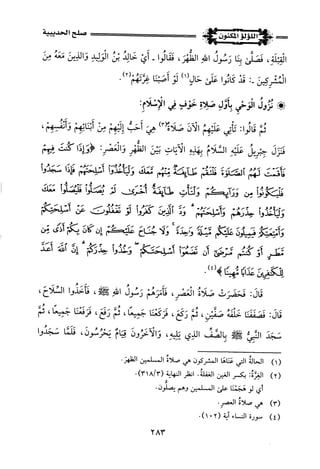 اللؤلؤ المكنون
صلح الحديبية
القِبْلَةِ، فَصَلَّى بِنَا رَسُولُ اللهِ الظُّهْرَ، فَقَالُوا - أَيْ خَالِدُ بْنُ الْوَلِيدِ وَالذِينَ مَعَهُ مِنَ
الْمُشْرِكِينَ -: قَدْ كَانُوا عَلَى حَالٍ (١) لَوْ أَصَبْنَا غِرَّتَهُمْ (٢).
* نُزُولُ الْوَحْيِ بِأَوَّلِ صَلَاةِ خَوْفٍ فِي الْإِسْلَامِ:
ثُمَّ قَالُوا: تَأْتِي عَلَيْهِمُ الْآنَ صَلَاةٌ (٣) هِيَ أَحَبُّ إِلَيْهِمْ مِنْ أَبْنَائِهِمْ وَأَنْفُسِهِمْ،
فَنَزَلَ جِبْرِيلُ عَلَيْهِ السَّلَامُ بِهَذِهِ الْآيَاتِ بَيْنَ الظُّهْرِ وَالْعَصْرِ: ﴿وَإِذَا كُنتَ فِيهِمْ
فَأَقَمْتَ لَهُمُ الصَّلَوٰةَ فَلْتَقُمْ طَآئِفَةٌ مِّنْهُم مَّعَكَ وَلْيَأْخُذُوٓا أَسْلِحَتَهُمْ فَإِذَا سَجَدُوا
فَلْيَكُونُوا مِن وَرَآئِكُمْ وَلْتَأْتِ طَآئِفَةٌ أُخْرَىٰ لَمْ يُصَلُّوا فَلْيُصَلُّوا مَعَكَ
وَلْيَأْخُذُوا حِذْرَهُمْ وَأَسْلِحَتَهُمْ وَدَّ الَّذِينَ كَفَرُوا لَوْ تَغْفُلُونَ عَنْ أَسْلِحَتِكُمْ
وَأَمْتِعَتِكُمْ فَيَمِيلُونَ عَلَيْكُم مَّيْلَةً وَٰحِدَةً وَلَا جُنَاحَ عَلَيْكُمْ إِن كَانَ بِكُمْ أَذًى مِّن
مَّطَرٍ أَوْ كُنتُم مَّرْضَىٰٓ أَن تَضَعُوٓا أَسْلِحَتَكُمْ وَخُذُوا حِذْرَكُمْ إِنَّ اللَّهَ أَعَدَّ
لِلْكَٰفِرِينَ عَذَابًا مُّهِينًا﴾ (٤).
قَالَ: فَحَضَرَتْ صَلَاةُ الْعَصْرِ، فَأَمَرَهُمْ رَسُولُ اللهِ ﷺ، فَأَخَذُوا السِّلَاحَ،
قَالَ: فَصَفَفْنَا خَلْفَهُ صَفَّيْنِ، ثُمَّ رَكَعَ، فَرَكَعْنَا جَمِيعًا، ثُمَّ رَفَعَ، فَرَفَعْنَا جَمِيعًا، ثُمَّ
سَجَدَ النَّبِيُّ ﷺ بِالصَّفِّ الذِي يَلِيهِ، وَالْآخَرُونَ قِيَامٌ يَحْرُسُونَ، فَلَمَّا سَجَدُوا
(١) الحالةُ التي عَنَاهَا المشركون هي صلاةُ المسلمين الظهرَ.
(٢) الغِرَّةُ: بكسر الغين الغفلةُ. انظر النهاية (٣١٨/٣)
أي لو هَجَمْنَا على المسلمين وهم يصلُّون.
(٣) هي صلاةُ العصرِ.
(٤) سورة النساء آية (١٠٢).
٢٨٣